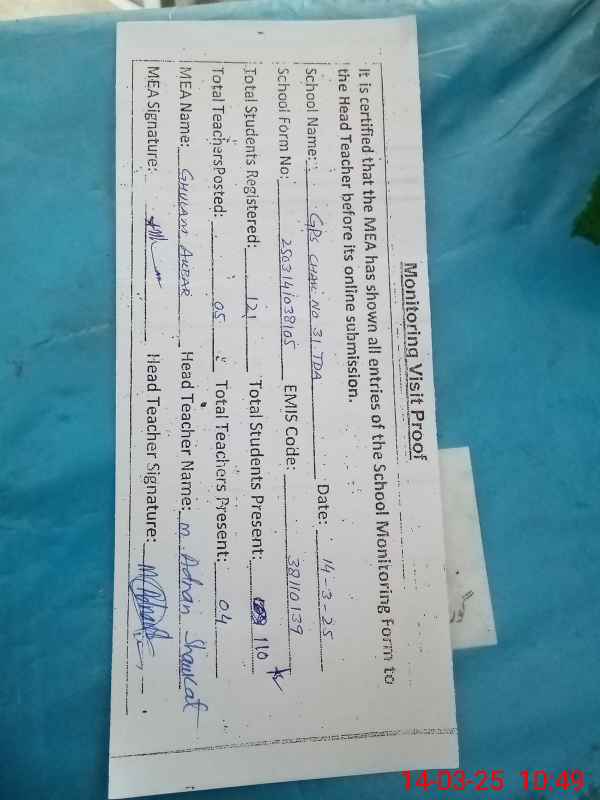 Monitoring Visit Proof
It is certified that the MEA has shown all entries of the School Monitoring Form to
the Head Teacher before its online submission.
School Name: GPS CHAK No 31.TDA Date: 14-3-25
School Form No: 2503141038105 EMIS Code: 38110139
Total Students Registered: 121 Total Students Present: 110
Total TeachersPosted: 05 Total Teachers Present: 04
MEA Name: GHULAM AKBAR Head Teacher Name: M. Adnan Shawkat
MEA Signature: Head Teacher Signature:
14-03-25 10:49